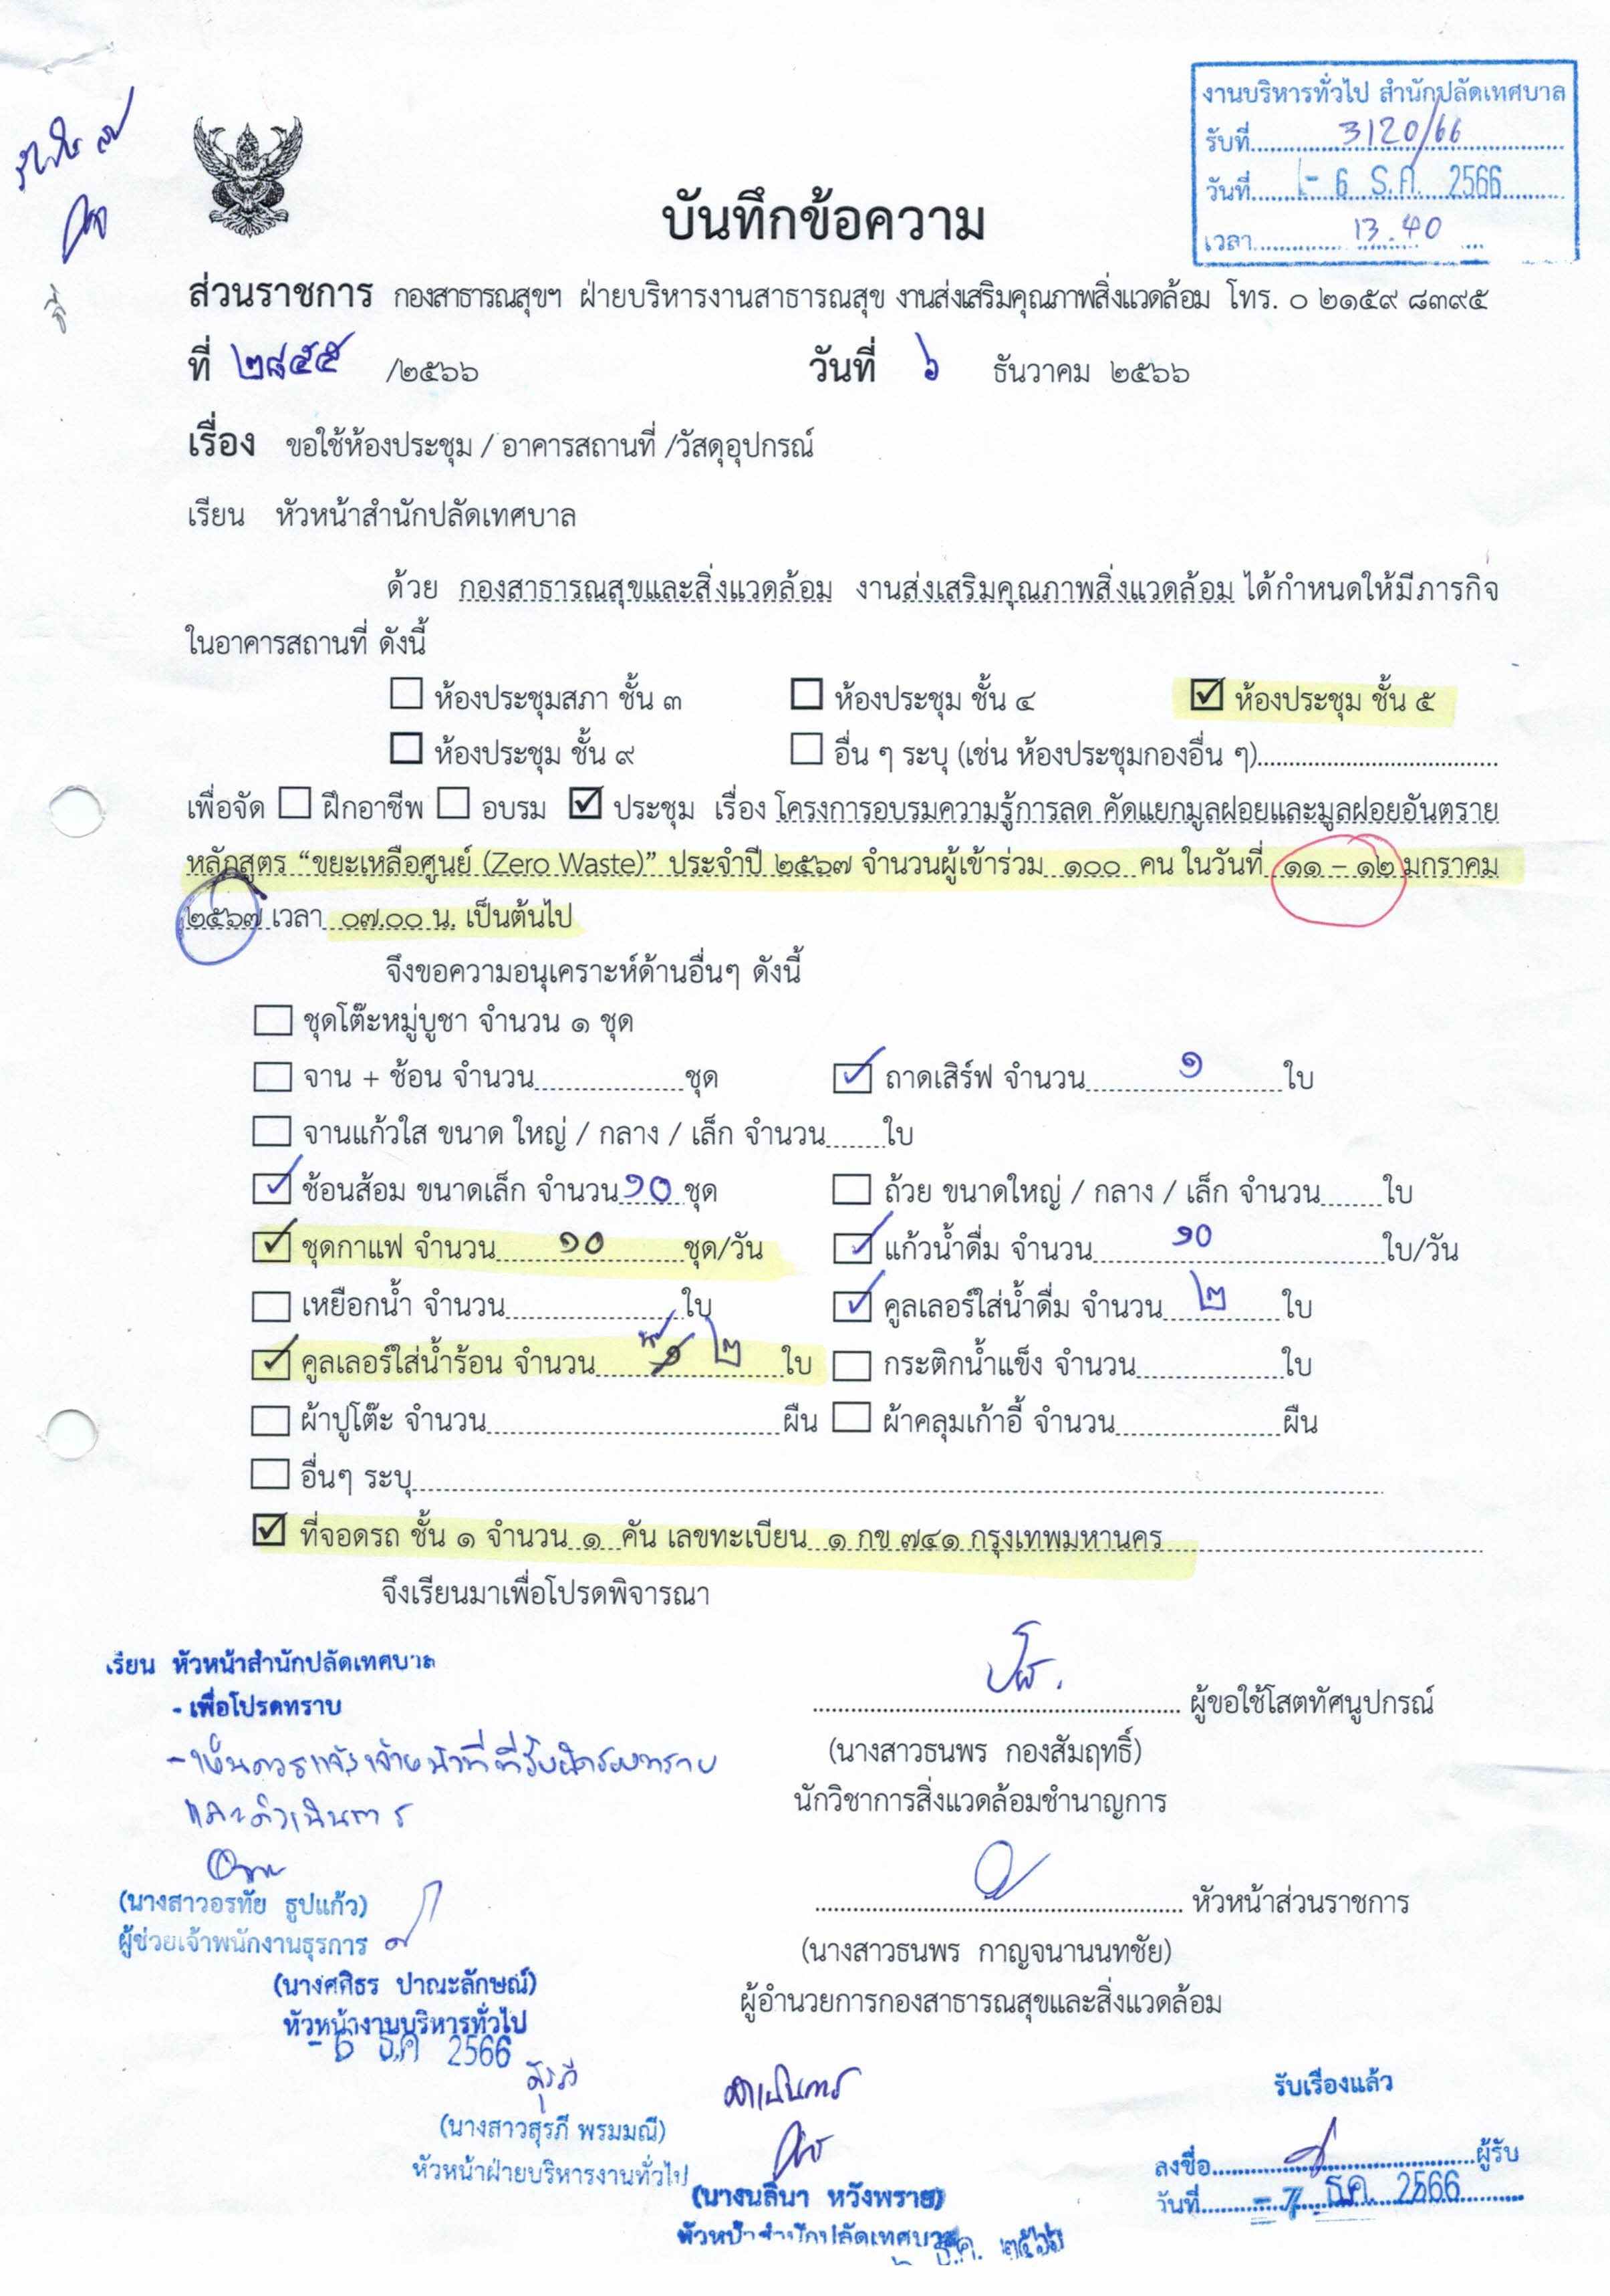 งานบริหารทั่วไป สำนักปลัดเทศบาล
รับที่ 3120/66
วันที่ - 6 ธ.ค. 2566
เวลา 13.40
บันทึกข้อความ
ส่วนราชการ กองสาธารณสุขฯ ฝ่ายบริหารงานสาธารณสุข งานส่งเสริมคุณภาพสิ่งแวดล้อม โทร. ๐ ๒๑๕๙ ๘๓๙๕
ที่ ๒๘๕๕ /๒๕๖๖ วันที่ ๖ ธันวาคม ๒๕๖๖
เรื่อง ขอใช้ห้องประชุม / อาคารสถานที่ /วัสดุอุปกรณ์
เรียน หัวหน้าสำนักปลัดเทศบาล
ด้วย กองสาธารณสุขและสิ่งแวดล้อม งานส่งเสริมคุณภาพสิ่งแวดล้อม ได้กำหนดให้มีภารกิจ
ในอาคารสถานที่ ดังนี้
☐ ห้องประชุมสภา ชั้น ๓ ☐ ห้องประชุม ชั้น ๔ ☑ ห้องประชุม ชั้น ๕
☐ ห้องประชุม ชั้น ๙ ☐ อื่น ๆ ระบุ (เช่น ห้องประชุมกองอื่น ๆ)
เพื่อจัด ☐ ฝึกอาชีพ ☐ อบรม ☑ ประชุม เรื่อง โครงการอบรมความรู้การลด คัดแยกมูลฝอยและมูลฝอยอันตราย
หลักสูตร “ขยะเหลือศูนย์ (Zero Waste)” ประจำปี ๒๕๖๗ จำนวนผู้เข้าร่วม ๑๐๐ คน ในวันที่ ๑๑ – ๑๒ มกราคม
๒๕๖๗ เวลา ๐๗.๐๐ น. เป็นต้นไป
จึงขอความอนุเคราะห์ด้านอื่นๆ ดังนี้
☐ ชุดโต๊ะหมู่บูชา จำนวน ๑ ชุด
☐ จาน + ช้อน จำนวน ชุด ☑ ถาดเสิร์ฟ จำนวน ๑ ใบ
☐ จานแก้วใส ขนาด ใหญ่ / กลาง / เล็ก จำนวน ใบ
☑ ช้อนส้อม ขนาดเล็ก จำนวน ๑๐ ชุด ☐ ถ้วย ขนาดใหญ่ / กลาง / เล็ก จำนวน ใบ
☑ ชุดกาแฟ จำนวน ๑๐ ชุด/วัน ☑ แก้วน้ำดื่ม จำนวน ๑๐ ใบ/วัน
☐ เหยือกน้ำ จำนวน ใบ ☑ คูลเลอร์ใส่น้ำดื่ม จำนวน ๒ ใบ
☑ คูลเลอร์ใส่น้ำร้อน จำนวน ๒ ใบ ☐ กระติกน้ำแข็ง จำนวน ใบ
☐ ผ้าปูโต๊ะ จำนวน ผืน ☐ ผ้าคลุมเก้าอี้ จำนวน ผืน
☐ อื่นๆ ระบุ
☑ ที่จอดรถ ชั้น ๑ จำนวน ๑ คัน เลขทะเบียน ๑ กข ๗๔๑ กรุงเทพมหานคร
จึงเรียนมาเพื่อโปรดพิจารณา
เรียน หัวหน้าสำนักปลัดเทศบาล
- เพื่อโปรดทราบ
- เห็นควรแจ้งเจ้าหน้าที่ที่รับผิดชอบทราบ
และดำเนินการ
(นางสาวอรทัย ธูปแก้ว)
ผู้ช่วยเจ้าพนักงานธุรการ
(นางศศิธร ปาณะลักษณ์)
หัวหน้างานบริหารทั่วไป
- 6 ธ.ค 2566
ผู้ขอใช้โสตทัศนูปกรณ์
(นางสาวธนพร กองสัมฤทธิ์)
นักวิชาการสิ่งแวดล้อมชำนาญการ
หัวหน้าส่วนราชการ
(นางสาวธนพร กาญจนานนทชัย)
ผู้อำนวยการกองสาธารณสุขและสิ่งแวดล้อม
สุรภี
(นางสาวสุรภี พรมมณี)
หัวหน้าฝ่ายบริหารงานทั่วไป
ดำเนินการ
(นางนลินา หวังพราย)
หัวหน้าสำนักปลัดเทศบาล
รับเรื่องแล้ว
ลงชื่อ ผู้รับ
วันที่ - 7 ธ.ค. 2566